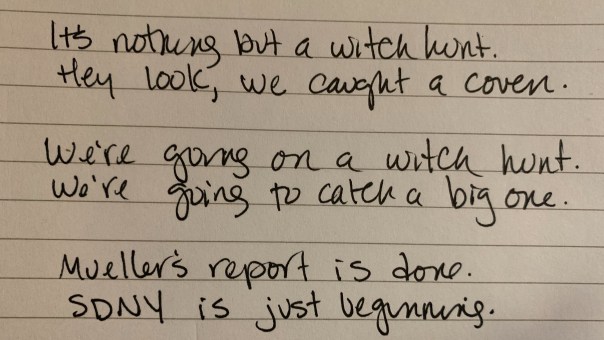 It's nothing but a witch hunt.
Hey look, we caught a coven.
We're going on a witch hunt.
We're going to catch a big one.
Mueller's report is done.
SDNY is just beginning.